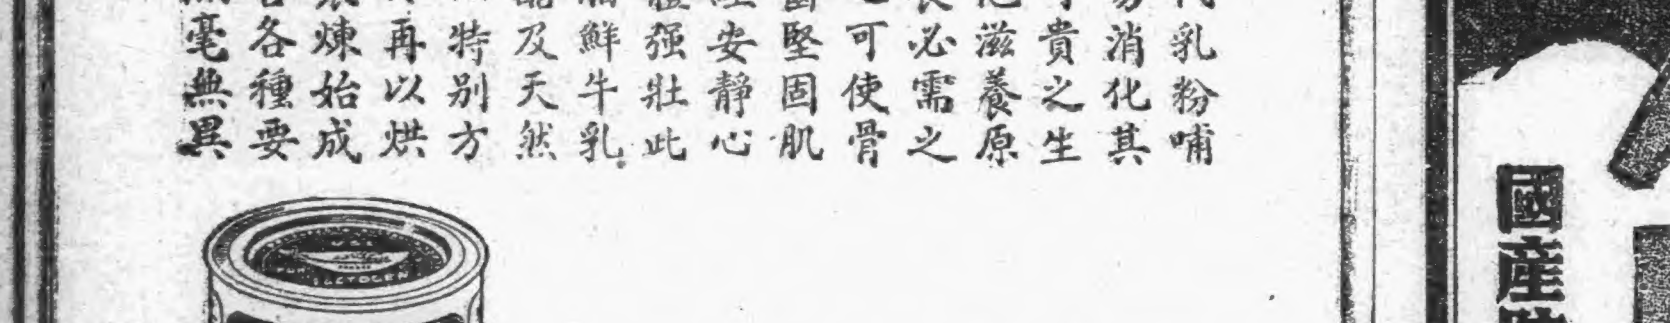 乳粉哺
消化其
貴之生
滋養原
必需之
可使骨
堅固肌
安靜心
强壯此
鮮牛乳
及天然
特别方
再以烘
煉始成
各種要
毫無異
LACTOGEN
國產